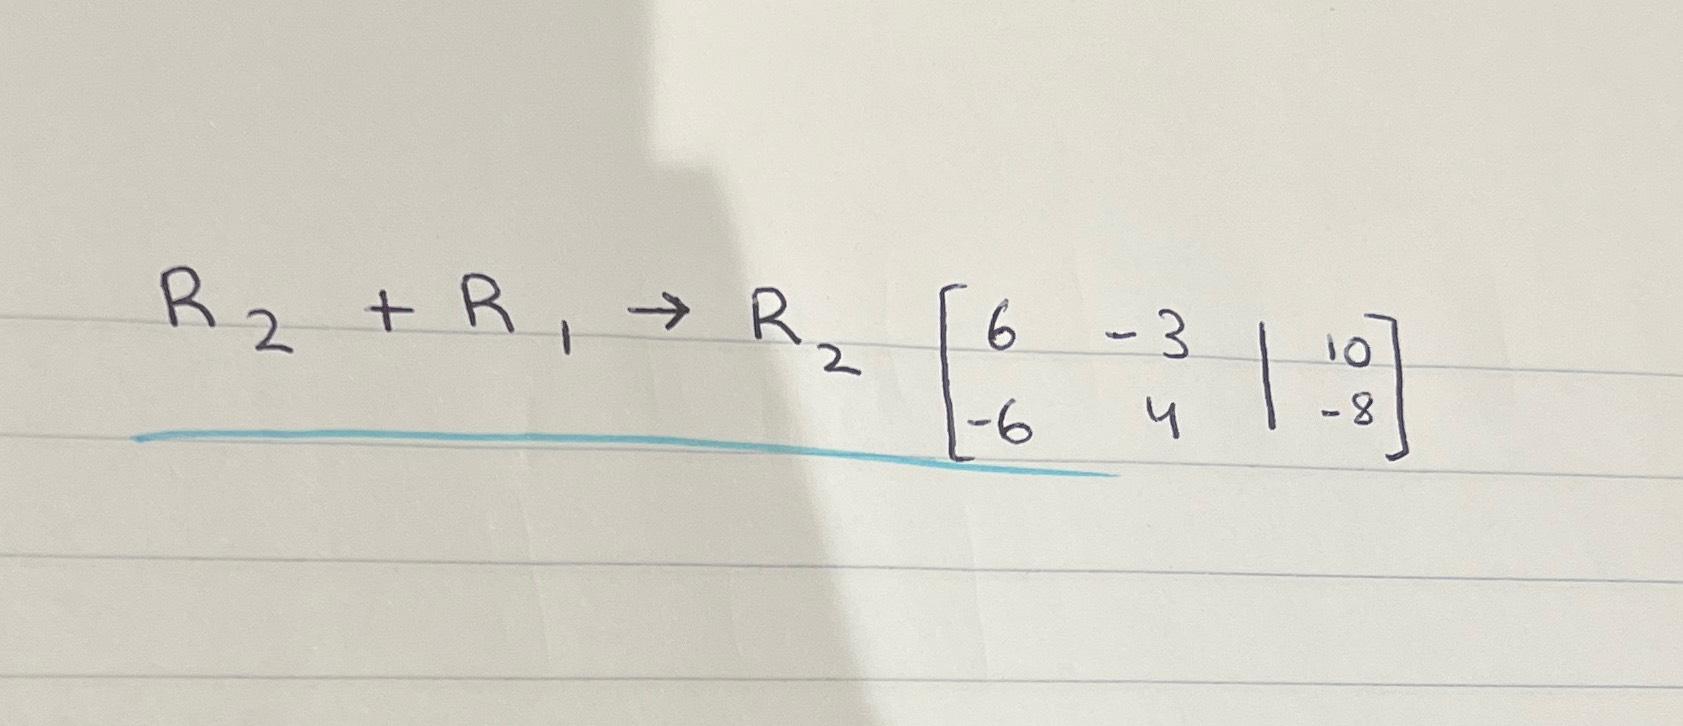 R₂ + R₁ → R₂ [ 6 -3 | 10 ]
[ -6 4 | -8 ]